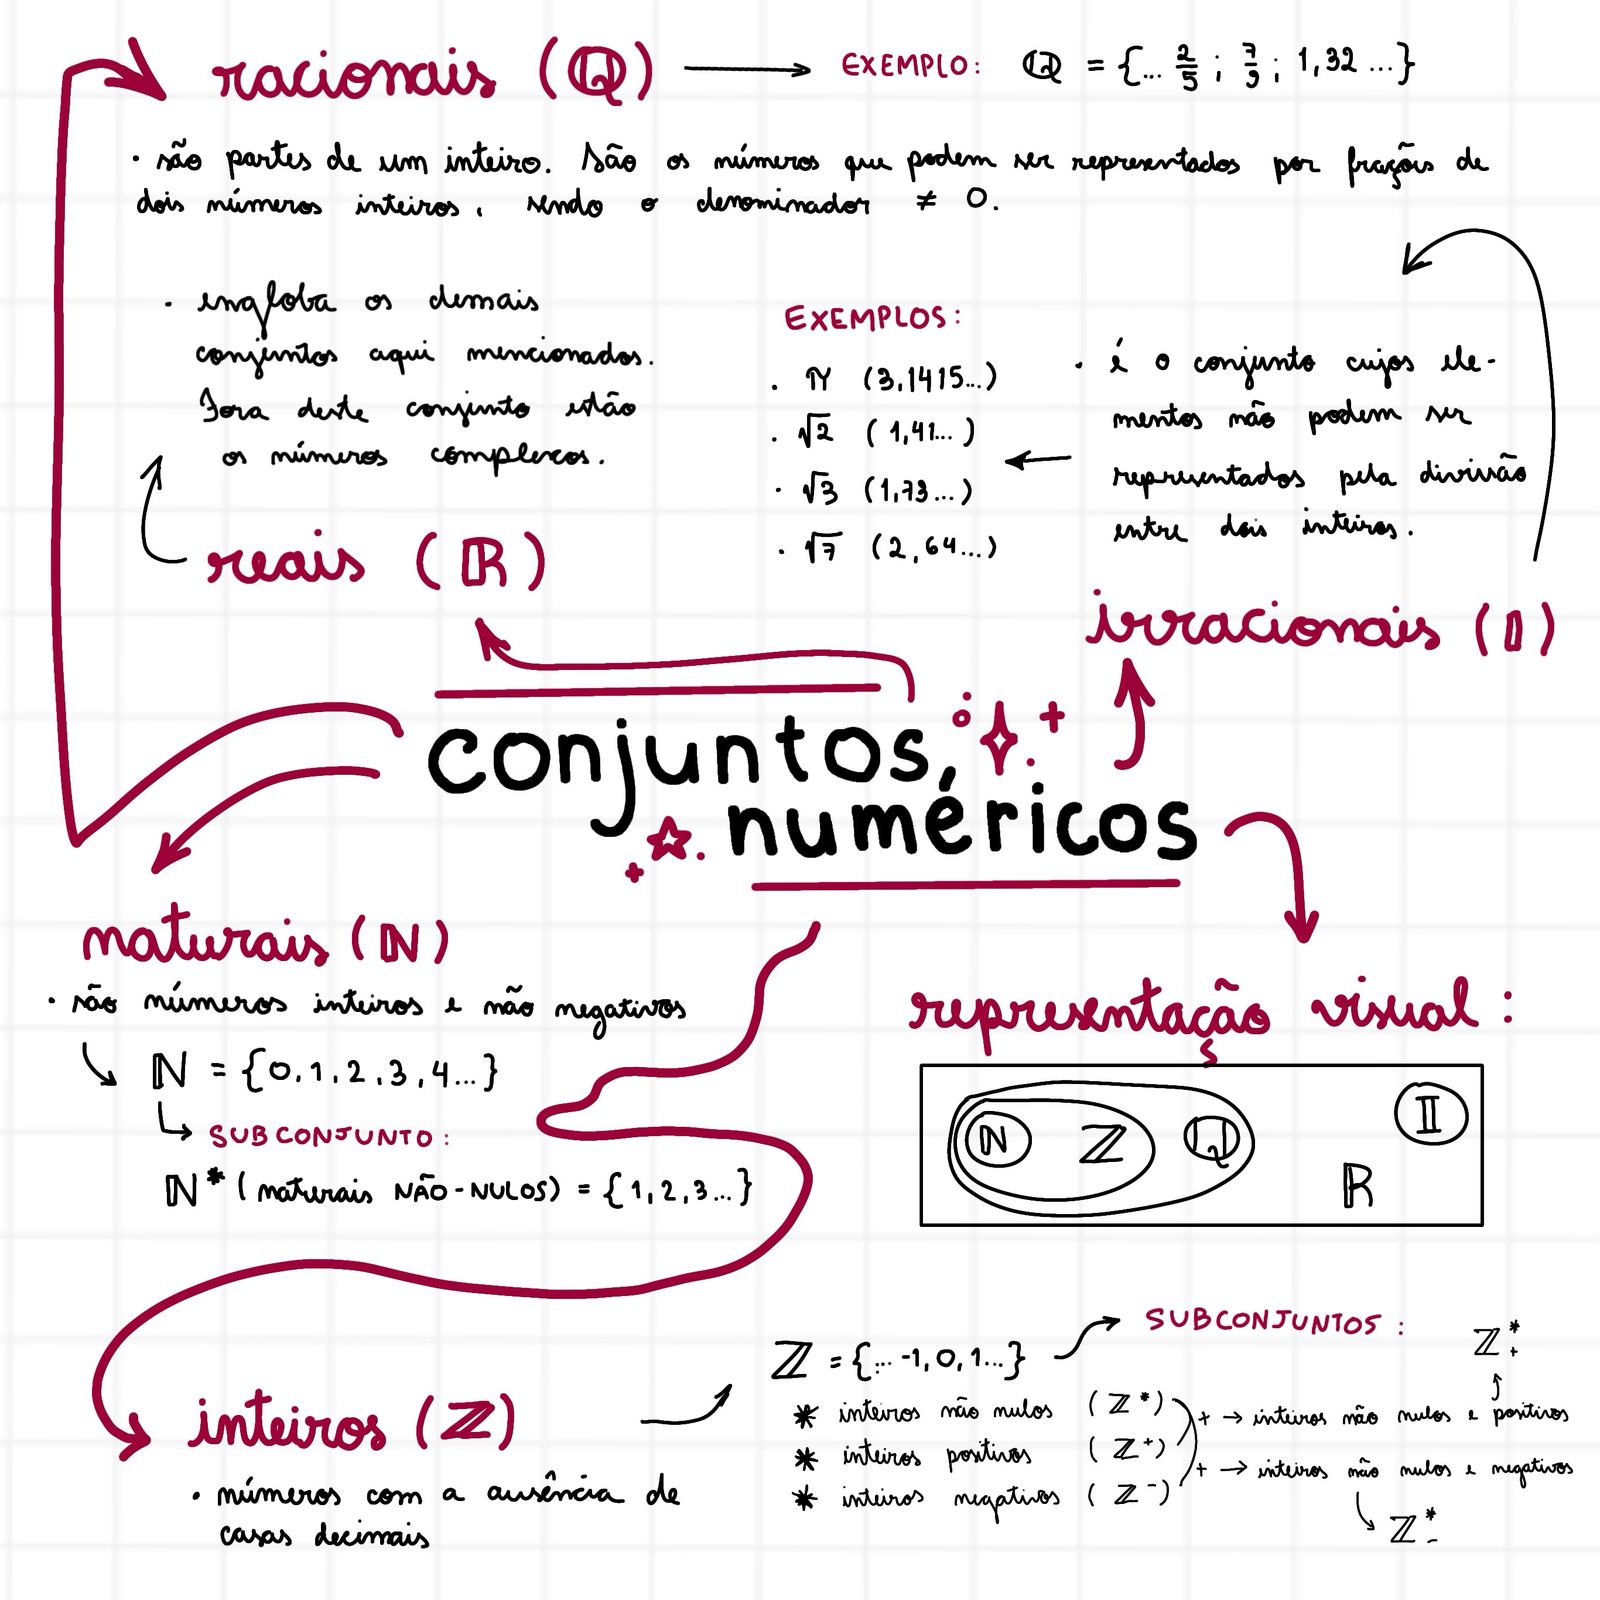 racionais (ℚ) → EXEMPLO: ℚ = {... 2/5 ; 7/9 ; 1,32 ...}
• são partes de um inteiro. São os números que podem ser representados por frações de
dois números inteiros, sendo o denominador ≠ 0.
• engloba os demais
conjuntos aqui mencionados.
Fora deste conjunto estão
os números complexos.
reais (ℝ)
EXEMPLOS:
• π (3,1415...)
• √2 (1,41...)
• √3 (1,73...)
• √7 (2,64...)
• é o conjunto cujos ele-
mentos não podem ser
representados pela divisão
entre dois inteiros.
irracionais (𝕀)
conjuntos,
numéricos
naturais (ℕ)
• são números inteiros e não negativos
ℕ = {0,1,2,3,4...}
SUBCONJUNTO:
ℕ* (naturais NÃO-NULOS) = {1,2,3...}
representação visual:
ℕ ℤ ℚ 𝕀
ℝ
inteiros (ℤ)
• números com a ausência de
casas decimais
ℤ = {... -1, 0, 1...}
SUBCONJUNTOS:
* inteiros não nulos (ℤ*)
* inteiros positivos (ℤ+)
* inteiros negativos (ℤ-)
ℤ*+
+ → inteiros não nulos e positivos
+ → inteiros não nulos e negativos
ℤ*-